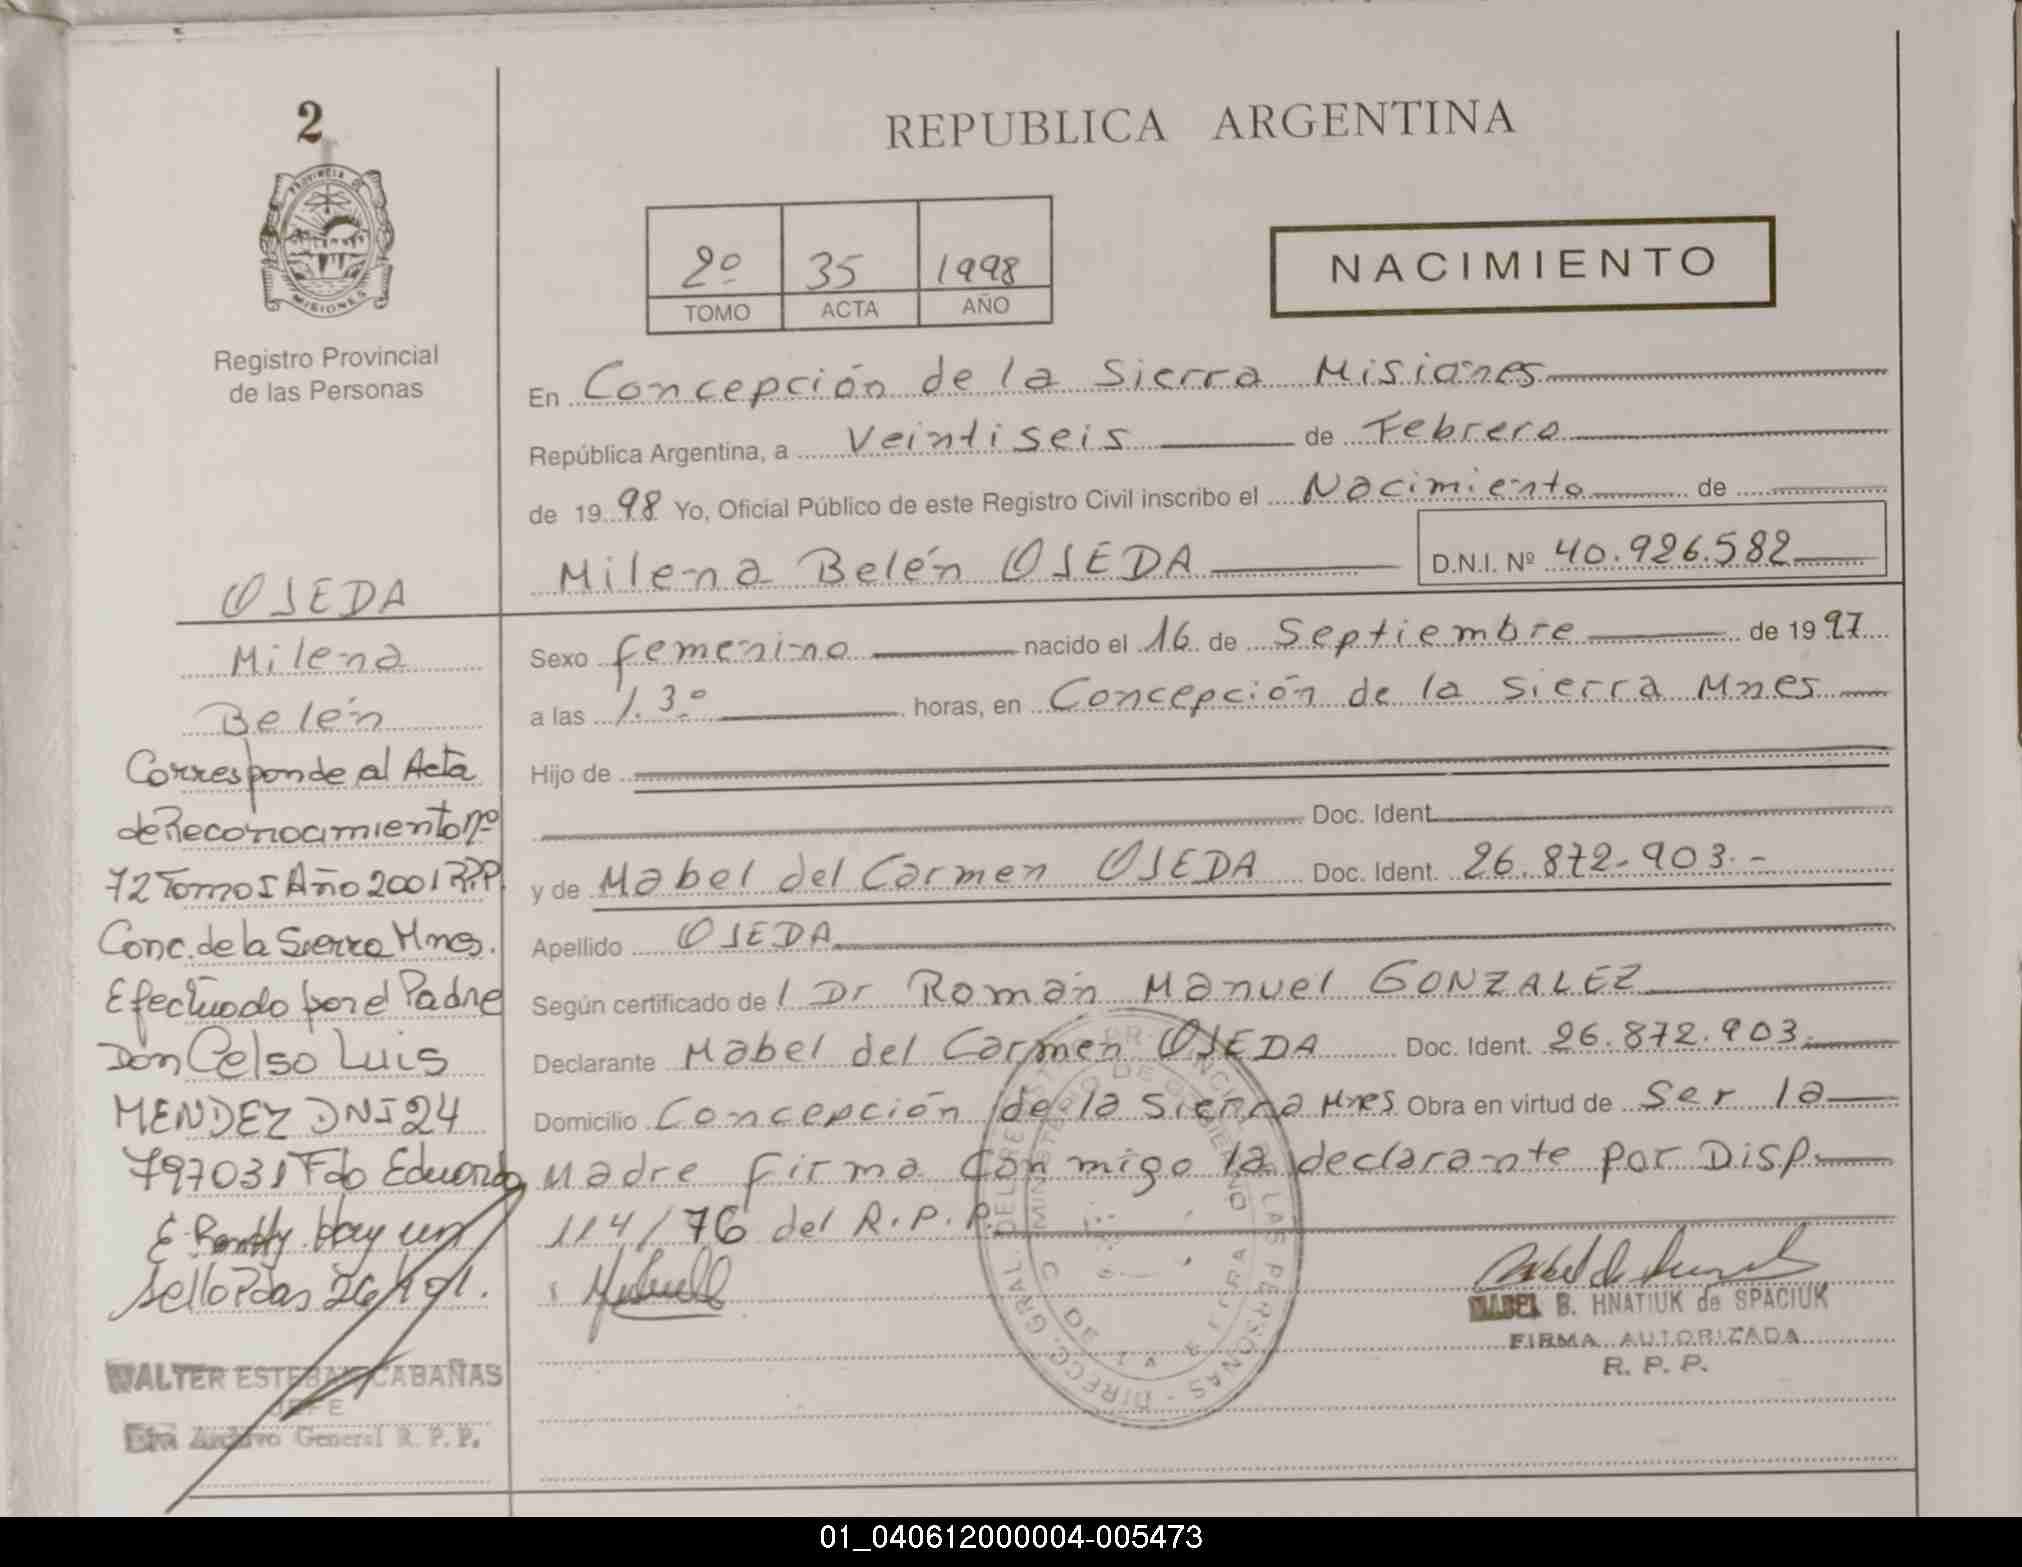 2
PROVINCIA DE
MISIONES
Registro Provincial
de las Personas
OJEDA
Milena
Belén
Corresponde al Acta
de Reconocimiento nº
72 Tomo I Año 2001 R.P.P.
Conc. de la Sierra Mnes.
Efectuado por el Padre
Don Celso Luis
MENDEZ DNI 24
797031 Fdo Eduardo
E. Hay un
sello Pdas 26/ /01.
WALTER ESTEBAN CABAÑAS
JEFE
Archivo General R. P. P.
REPUBLICA ARGENTINA
2º 35 1998
TOMO ACTA AÑO
NACIMIENTO
En Concepción de la Sierra Misiones
República Argentina, a Veintiseis de Febrero
de 1998 Yo, Oficial Público de este Registro Civil inscribo el Nacimiento de
Milena Belén OJEDA D.N.I. Nº 40.926.582
Sexo femenino nacido el 16 de Septiembre de 1997
a las 1.3º horas, en Concepción de la Sierra Mnes
Hijo de
Doc. Ident.
y de Mabel del Carmen OJEDA Doc. Ident. 26.872.903.-
Apellido OJEDA
Según certificado del Dr Román Manuel GONZALEZ
Declarante Mabel del Carmen OJEDA Doc. Ident. 26.872.903.
Domicilio Concepción de la Sierra Mnes Obra en virtud de Ser la
Madre firma conmigo la declarante por Disp.
114/76 del R.P.P.
MABEL B. HNATIUK de SPACIUK
FIRMA AUTORIZADA
R. P. P.
01_040612000004-005473